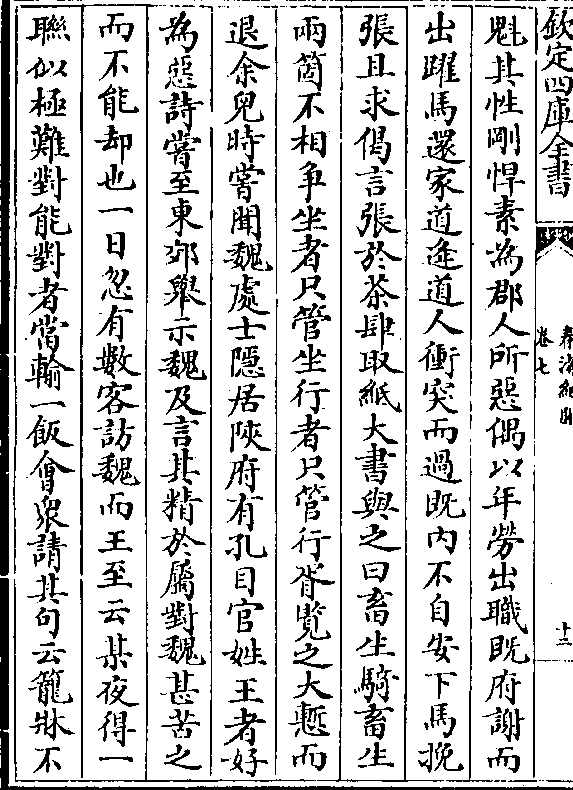 欽定四庫全書
春渚紀聞
卷七
十三
魁其性剛悍素為郡人所惡偶以年勞出職既府謝而
出躍馬還家道逢道人衝突而過既内不自安下馬挽
張且求偈言張於茶肆取紙大書與之曰畜生騎畜生
兩箇不相争坐者只管坐行者只管行胥覽之大慙而
退余兒時嘗聞魏處士隱居陜府有孔目官姓王者好
為惡詩嘗至東郊舉示魏及言其精於屬對魏甚苦之
而不能却也一日忽有數客訪魏而王至云某夜得一
聯似極難對能對者當輸一飯會衆請其句云籠牀不